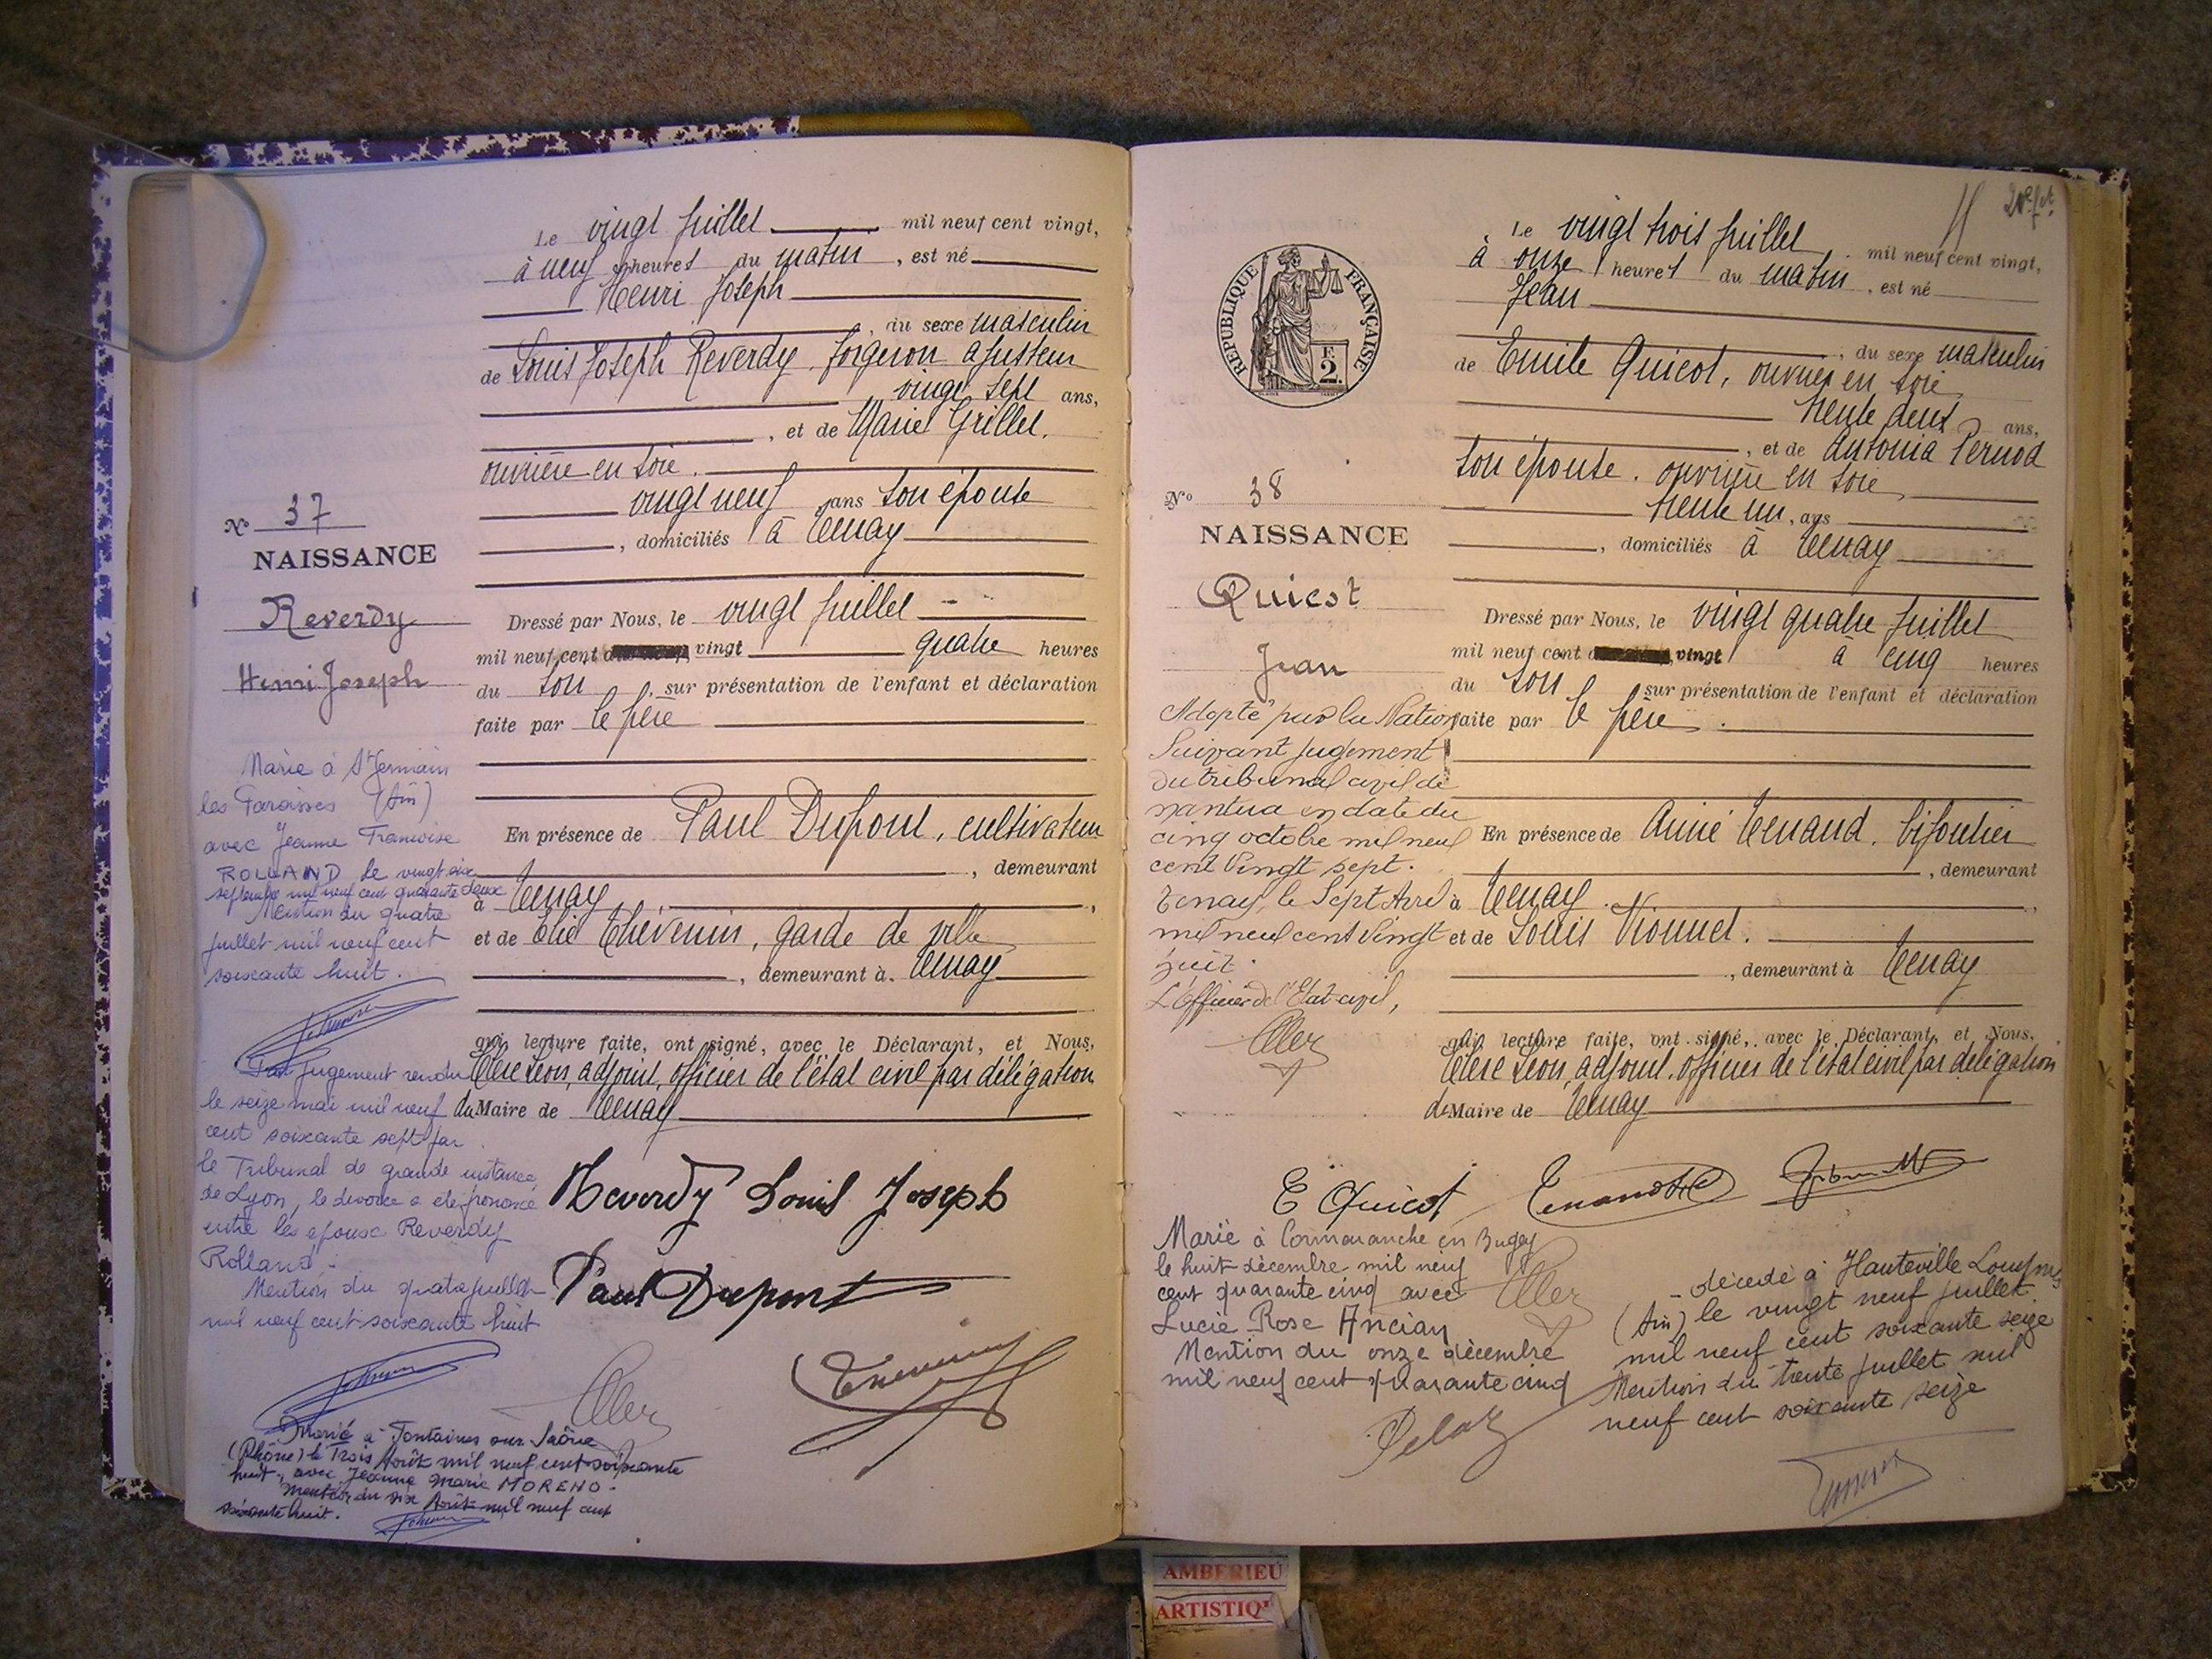 Le vingt juillet mil neuf cent vingt,
à neuf heures du matin, est né
Henri Joseph
, du sexe masculin
de Louis Joseph Reverdy, forgeron ajusteur
vingt sept ans,
, et de Marie Grillet,
ouvrière en soie.
vingt neuf ans son épouse
, domiciliés à Tenay
No 37
NAISSANCE
Reverdy
Henri Joseph
Dressé par Nous, le vingt juillet
mil neuf cent vingt quatre heures
du soir, sur présentation de l'enfant et déclaration
faite par le père
En présence de Paul Dupont, cultivateur
, demeurant
à Tenay,
et de Elie Thévenin, garde de ville
, demeurant à Tenay
qui, lecture faite, ont signé, avec le Déclarant, et Nous,
Clerc Léon, adjoint, officier de l'état civil par délégation
du Maire de Tenay
Reverdy Louis Joseph
Paul Dupont
Marié à St Germain
les Paroisses (Ain)
avec Jeanne Francoise
ROLLAND le vingt six
septembre mil neuf cent quarante deux
Mention du quatre
juillet mil neuf cent
soixante huit.
Par jugement rendu
le seize mai mil neuf
cent soixante sept par
le Tribunal de grande instance
de Lyon, le divorce a été prononcé
entre les epoux Reverdy
Rolland.
Mention du quatre juillet
mil neuf cent soixante huit
Marié à Fontaines sur Saône
(Rhône) le Trois Août mil neuf cent soixante
huit, avec Jeanne Marie MORENO.
Mention du six Août mil neuf cent
soixante huit.
Le vingt trois juillet mil neuf cent vingt,
à onze heures du matin, est né
Jean
, du sexe masculin
de Emile Quicot, ouvrier en soie
trente deux ans,
, et de Antonia Pernod
son épouse. ouvrière en soie
trente un, ans
, domiciliés à Tenay
REPUBLIQUE FRANÇAISE
2.
No 38
NAISSANCE
Quicot
Jean
Dressé par Nous, le vingt quatre juillet
mil neuf cent vingt à cinq heures
du soir sur présentation de l'enfant et déclaration
faite par le père.
En présence de Aimé Tenand, bijoutier
, demeurant
à Tenay
et de Louis Vionnet.
, demeurant à Tenay
qui, lecture faite, ont signé, avec le Déclarant, et Nous,
Clerc Léon, adjoint, officier de l'état civil par délégation
du Maire de Tenay
Adopté par la Nation
Suivant jugement
du tribunal civil de
nantua en date du
cinq octobre mil neuf
cent vingt sept.
Tenay, le Sept Avril
mil neuf cent vingt
huit.
L'Officier de l'Etat-civil,
E Quicot
Marié à Cormaranche en Bugey
le huit décembre mil neuf
cent quarante cinq avec
Lucie Rose Ancian
Mention du onze décembre
mil neuf cent quarante cinq
décédé à Hauteville Lompnes
(Ain) le vingt neuf juillet
mil neuf cent soixante seize
Mention du trente juillet mil
neuf cent soixante seize
AMBERIEU
ARTISTIQ